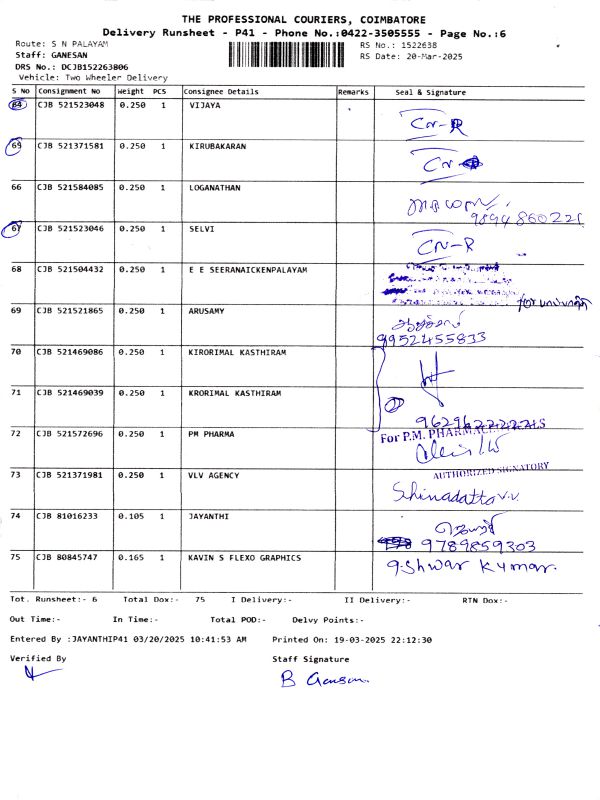 THE PROFESSIONAL COURIERS, COIMBATORE
Delivery Runsheet - P41 - Phone No.:0422-3505555 - Page No.:6
Route: S N PALAYAM
RS No.: 1522638
Staff: GANESAN
RS Date: 20-Mar-2025
DRS No.: DCJB152263806
Vehicle: Two Wheeler Delivery
S No Consignment No Weight PCS Consignee Details Remarks Seal & Signature
64 CJB 521523048 0.250 1 VIJAYA CN-R
65 CJB 521371581 0.250 1 KIRUBAKARAN CN-
66 CJB 521584085 0.250 1 LOGANATHAN
67 CJB 521523046 0.250 1 SELVI CN-R
68 CJB 521504432 0.250 1 E E SEERANAICKENPALAYAM
69 CJB 521521865 0.250 1 ARUSAMY
9952455833
70 CJB 521469086 0.250 1 KIRORIMAL KASTHIRAM
71 CJB 521469039 0.250 1 KRORIMAL KASTHIRAM
72 CJB 521572696 0.250 1 PM PHARMA For P.M. PHARMACEUTICALS
73 CJB 521371981 0.250 1 VLV AGENCY AUTHORIZED SIGNATORY
74 CJB 81016233 0.105 1 JAYANTHI
9789859303
75 CJB 80845747 0.165 1 KAVIN S FLEXO GRAPHICS
Tot. Runsheet:- 6 Total Dox:- 75 I Delivery:- II Delivery:- RTN Dox:-
Out Time:- In Time:- Total POD:- Delvy Points:-
Entered By :JAYANTHIP41 03/20/2025 10:41:53 AM Printed On: 19-03-2025 22:12:30
Verified By Staff Signature